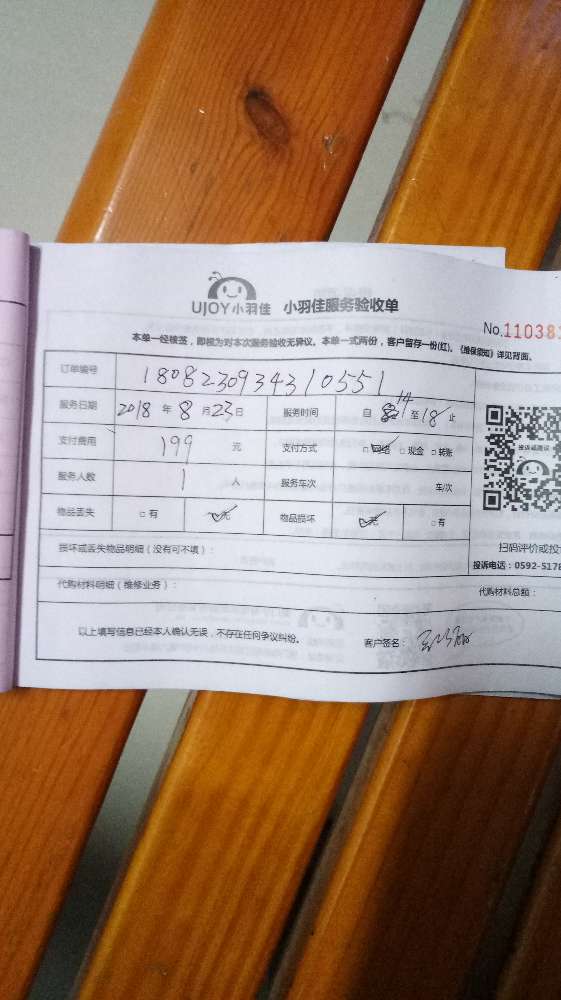 UJOY小羽佳 小羽佳服务验收单
No.11038
本单一经核签，即视为对本次服务验收无异议。本单一式两份，客户留存一份(红)。《维保须知》详见背面。
订单编号 1808230934310551
服务日期 2018 年 8 月 23 日 服务时间 自 14 至 18 止
支付费用 199 元 支付方式 □网络 □现金 □转账
服务人数 1 人 服务车次 车/次
物品丢失 □有 □无 物品损坏 □无 □有
损坏或丢失物品明细（没有可不填）：
代购材料明细（维修业务）： 代购材料总额：
以上填写信息已经本人确认无误，不存在任何争议纠纷。 客户签名：
投诉或建议
扫码评价或投
投诉电话：0592-5178